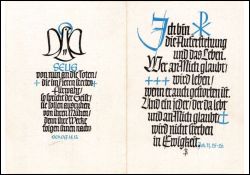 SELIG
von nun an die Toten,
die im Herrn sterben
Fürwahr,
so spricht der Geist,
sie sollen ausruhen
von ihren Mühen,
denn ihre Werke
folgen ihnen nach
Offbg 14,13
Ich bin
die Auferstehung
und das Leben.
Wer an Mich glaubt,
wird leben,
wenn er auch gestorben ist.
Und ein jeder der da lebt
und an Mich glaubt
wird nicht sterben
in Ewigkeit.
Joh. 11, 25-26